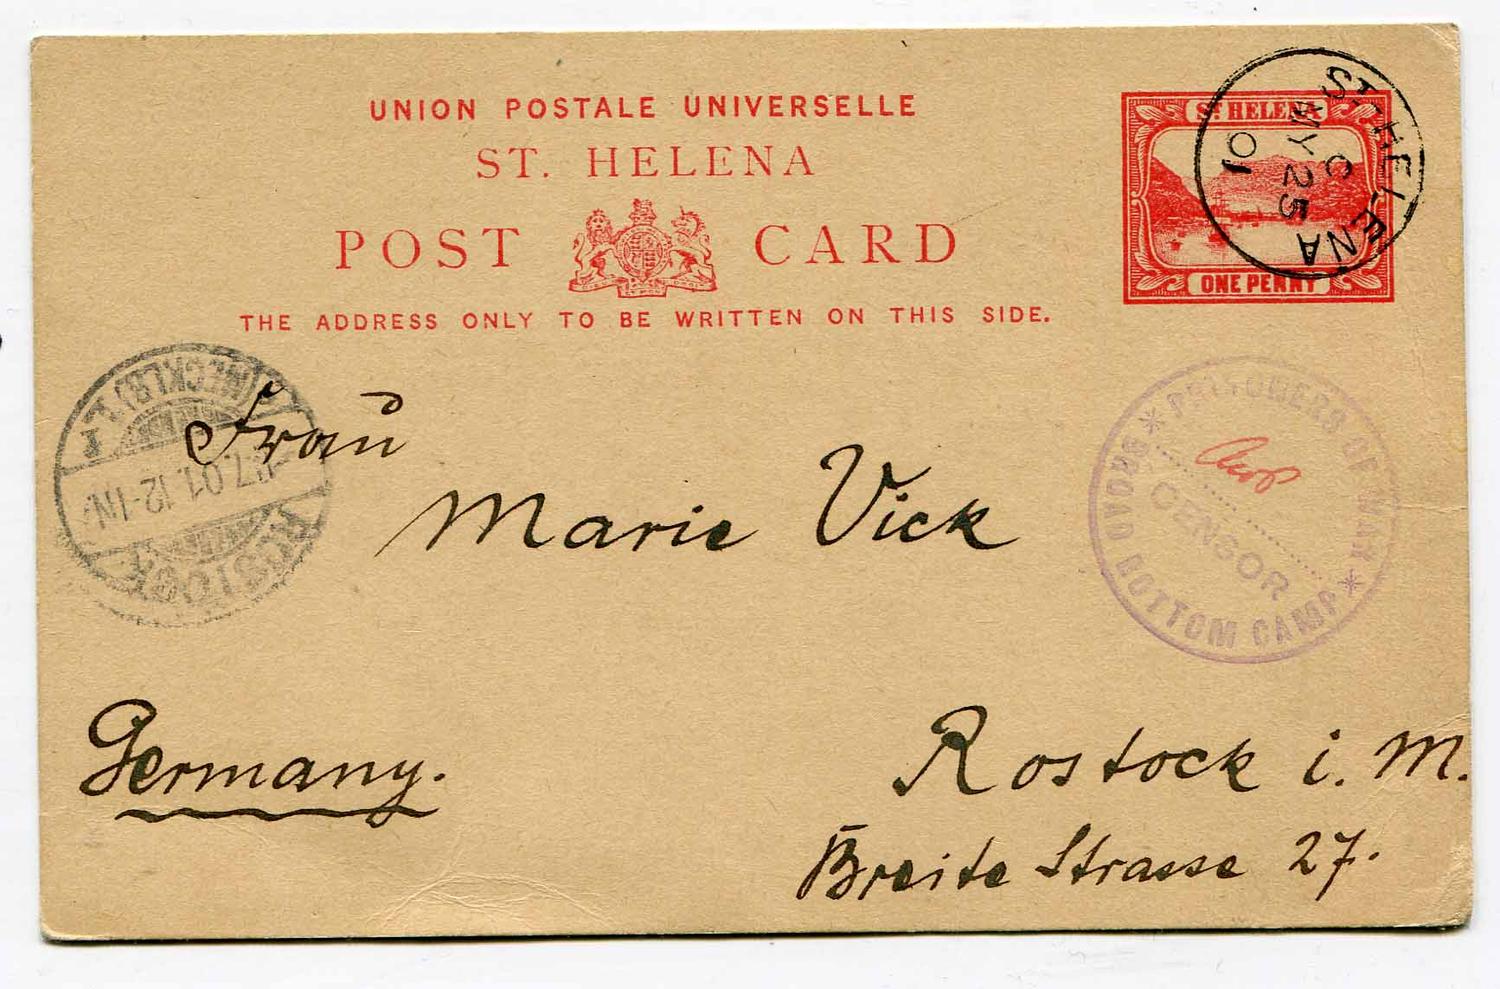 UNION POSTALE UNIVERSELLE
ST. HELENA
POST CARD
THE ADDRESS ONLY TO BE WRITTEN ON THIS SIDE.
ST. HELENA
ONE PENNY
ST. HELENA
C
MY 25
01
Frau
Marie Vick
Germany.
Rostock i. M.
Breite Strasse 27.
PRISONERS OF WAR
CENSOR
BROAD BOTTOM CAMP
ROSTOCK
(MECKLB) 1.
7.01.12-1N.